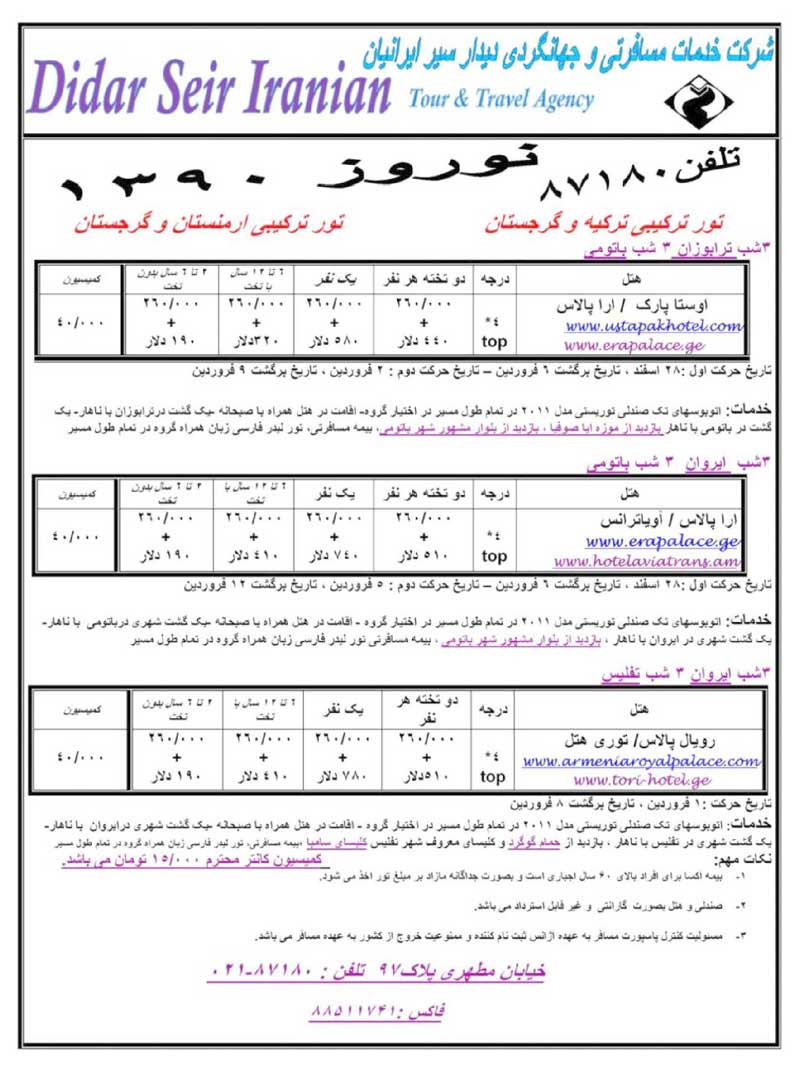 شرکت خدمات مسافرتی و جهانگردی دیدار سیر ایرانیان
Didar Seir Iranian Tour & Travel Agency
تلفن ۸۷۱۸۰ نوروز ۱۳۹۰
تور ترکیبی ترکیه و گرجستان تور ترکیبی ارمنستان و گرجستان
۳شب ترابوزان ۳ شب باتومی
هتل درجه دو تخته هر نفر یک نفر ۶ تا ۱۲ سال با تخت ۲ تا ۶ سال بدون تخت کمیسیون
اوستا پارک / ارا پالاس ۲۶۰/۰۰۰ ۲۶۰/۰۰۰ ۲۶۰/۰۰۰ ۲۶۰/۰۰۰
www.ustapakhotel.com ۴* + + + + ۴۰/۰۰۰
www.erapalace.ge top ۴۴۰ دلار ۵۸۰ دلار ۳۲۰دلار ۱۹۰ دلار
تاریخ حرکت اول :۲۸ اسفند ، تاریخ برگشت ۶ فروردین – تاریخ حرکت دوم : ۲ فروردین ، تاریخ برگشت ۹ فروردین
خدمات: اتوبوسهای تک صندلی توریستی مدل ۲۰۱۱ در تمام طول مسیر در اختیار گروه- اقامت در هتل همراه با صبحانه -یک گشت درترابوزان با ناهار- یک
گشت در باتومی با ناهار بازدید از موزه ایا صوفیا ، بازدید از بلوار مشهور شهر باتومی، بیمه مسافرتی، تور لیدر فارسی زبان همراه گروه در تمام طول مسیر
۳شب ایروان ۳ شب باتومی
هتل درجه دو تخته هر نفر یک نفر ۶ تا ۱۲ سال با تخت ۲ تا ۶ سال بدون تخت کمیسیون
ارا پالاس / آویاترانس ۲۶۰/۰۰۰ ۲۶۰/۰۰۰ ۲۶۰/۰۰۰ ۲۶۰/۰۰۰
www.erapalace.ge ۴* + + + + ۴۰/۰۰۰
www.hotelaviatrans.am top ۵۱۰ دلار ۷۴۰ دلار ۴۱۰ دلار ۱۹۰ دلار
تاریخ حرکت اول :۲۸ اسفند ، تاریخ برگشت ۶ فروردین – تاریخ حرکت دوم : ۵ فروردین ، تاریخ برگشت ۱۲ فروردین
خدمات: اتوبوسهای تک صندلی توریستی مدل ۲۰۱۱ در تمام طول مسیر در اختیار گروه - اقامت در هتل همراه با صبحانه -یک گشت شهری درباتومی با ناهار-
یک گشت شهری در ایروان با ناهار ، بازدید از بلوار مشهور شهر باتومی ، بیمه مسافرتی تور لیدر فارسی زبان همراه گروه در تمام طول مسیر
۳شب ایروان ۳ شب تفلیس
هتل درجه دو تخته هر نفر یک نفر ۶ تا ۱۲ سال با تخت ۲ تا ۶ سال بدون تخت کمیسیون
رویال پالاس/ توری هتل ۲۶۰/۰۰۰ ۲۶۰/۰۰۰ ۲۶۰/۰۰۰ ۲۶۰/۰۰۰
www.armeniaroyalpalace.com ۴* + + + + ۴۰/۰۰۰
www.tori-hotel.ge top ۵۱۰دلار ۷۸۰ دلار ۴۱۰ دلار ۱۹۰ دلار
تاریخ حرکت :۱ فروردین ، تاریخ برگشت ۸ فروردین
خدمات: اتوبوسهای تک صندلی توریستی مدل ۲۰۱۱ در تمام طول مسیر در اختیار گروه - اقامت در هتل همراه با صبحانه -یک گشت شهری درایروان با ناهار-
یک گشت شهری در تفلیس با ناهار ، بازدید از حمام گوگرد و کلیسای معروف شهر تفلیس کلیسای سامبا ،بیمه مسافرتی، تور لیدر فارسی زبان همراه گروه در تمام طول مسیر
نکات مهم: کمیسیون کانتر محترم ۱۵/۰۰۰ تومان می باشد.
۱- بیمه اکسا برای افراد بالای ۶۰ سال اجباری است و بصورت جداگانه مازاد بر مبلغ تور اخذ می شود.
۲- صندلی و هتل بصورت گارانتی و غیر قابل استرداد می باشد.
۳- مسئولیت کنترل پاسپورت مسافر به عهده آژانس ثبت نام کننده و ممنوعیت خروج از کشور به عهده مسافر می باشد.
خیابان مطهری پلاک۹۷ تلفن : ۸۷۱۸۰-۰۲۱
فاکس :۸۸۵۱۱۷۴۱